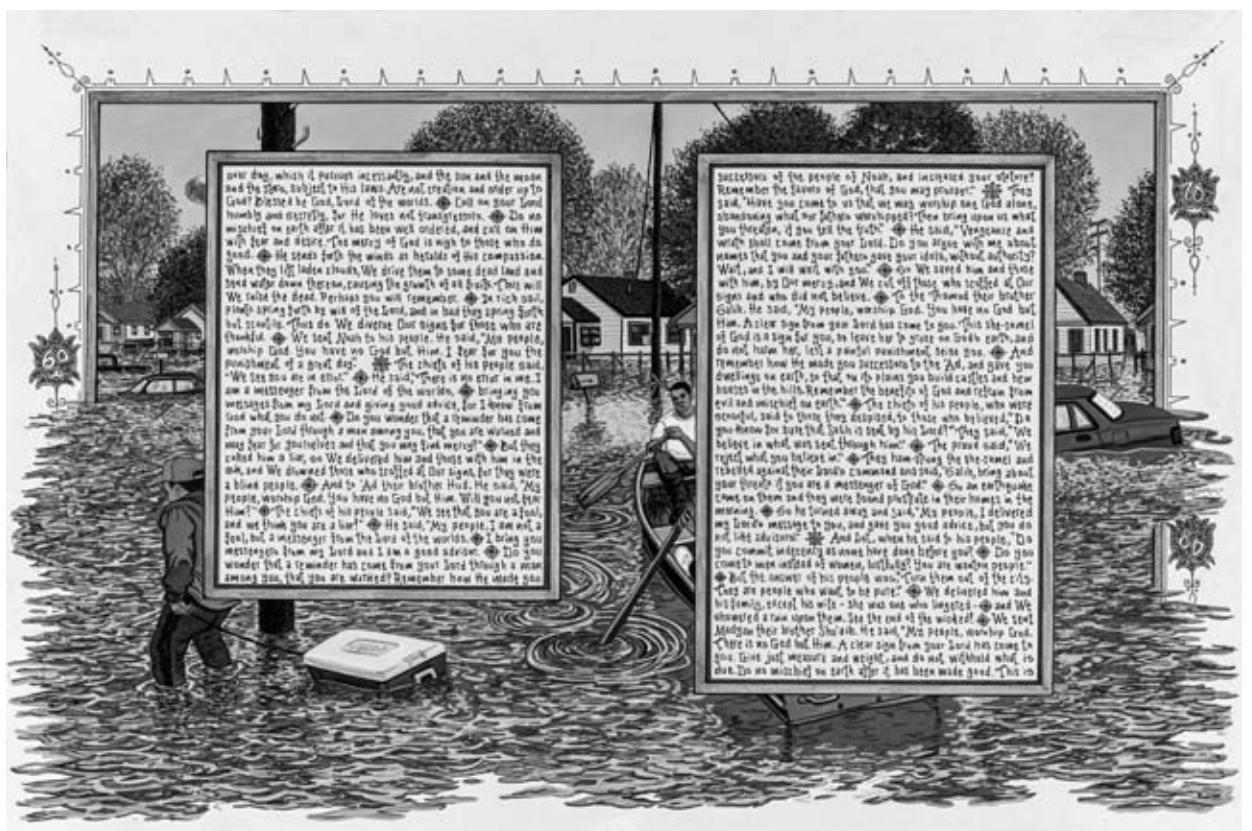 over day, which it pursues incessantly, and the sun and the moon
and the stars, subject to His laws. Are not creation and order up to
God? Blessed be God, Lord of the worlds. Call on your Lord
humbly and secretly, for He loves not transgressors. Do no
mischief on earth after it has been well ordered, and call on Him
with fear and desire. The mercy of God is nigh to those who do
good. He sends forth the winds as heralds of His compassion.
When they lift laden clouds, We drive them to some dead land and
send water down thereon, causing the growth of all fruits. Thus will
We raise the dead. Perhaps you will remember. In rich soil,
plants spring forth by will of the Lord, and in bad they spring forth
but scantily. Thus do We diverse Our signs for those who are
thankful. We sent Noah to his people. He said, "My people,
worship God. You have no God but Him. I fear for you the
punishment of a great day." The chiefs of his people said,
"We see you are in error." He said, "There is no error in me. I
am a messenger from the Lord of the worlds, bringing you
messages from my Lord and giving good advice, for I know from
God what you do not. Do you wonder that a reminder has come
from your Lord through a man among you, that you are warned and
may fear for yourselves and that you may find mercy?" But they
called him a liar, so We delivered him and those with him in the
ark, and We drowned those who scoffed at Our signs, for they were
a blind people. And to 'Ad their brother Hud. He said, "My
people, worship God. You have no God but Him. Will you not fear
Him?" The chiefs of his people said, "We see that you are a fool,
and we think you are a liar!" He said, "My people, I am not a
fool, but a messenger from the Lord of the worlds. I bring you
messages from my Lord and I am a good advisor. Do you
wonder that a reminder has come from your Lord through a man
among you, that you are warned? Remember how He made you
successors of the people of Noah, and increased your stature?
Remember the favors of God, that you may prosper." They
said, "Have you come to us that we may worship one God alone,
abandoning what our fathers worshipped? Then bring upon us what
you threaten, if you tell the truth." He said, "Vengeance and
wrath shall come from your Lord. Do you argue with me about
names that you and your fathers gave your idols, without authority?
Wait, and I will wait with you." So We saved him and those
with him, by Our mercy, and We cut off those who scoffed at Our
signs and who did not believe. To the Thamud their brother
Salih. He said, "My people, worship God. You have no God but
Him. A clear sign from your Lord has come to you. This she-camel
of God is a sign for you, so leave her to graze on God's earth, and
do not harm her, lest a painful punishment seize you. And
remember how He made you successors to the 'Ad, and gave you
dwellings on earth, so that on its plains you build castles and hew
houses in the hills. Remember the benefits of God and refrain from
evil and mischief on earth." The chiefs of his people, who were
scornful, said to those they despised, to those who believed, "Do
you know for sure that Salih is sent by his Lord?" They said, "We
believe in what was sent through him." The proud said, "We
reject what you believe in." They ham-strung the she-camel and
rebelled against their Lord's command and said, "Salih, bring about
your threats if you are a messenger of God." So an earthquake
came on them and they were found prostrate in their homes in the
morning. So he turned away and said, "My people, I delivered
my Lord's message to you, and gave you good advice, but you do
not like advisors." And Lot, when he said to his people, "Do
you commit indecency as none have done before you? Do you
come to men instead of women, lustfully? You are wanton people."
But the answer of his people was, "Turn them out of the city.
They are people who want to be pure." We delivered him and
his family, except his wife - she was one who lingered - and We
showered a rain upon them. See the end of the wicked! We sent
Madyan their brother Shu'aib. He said, "My people, worship God.
There is no God but Him. A clear sign from your Lord has come to
you. Give just measure and weight, and do not withhold what is
due. Do no mischief on earth after it has been made good. This is
60
70